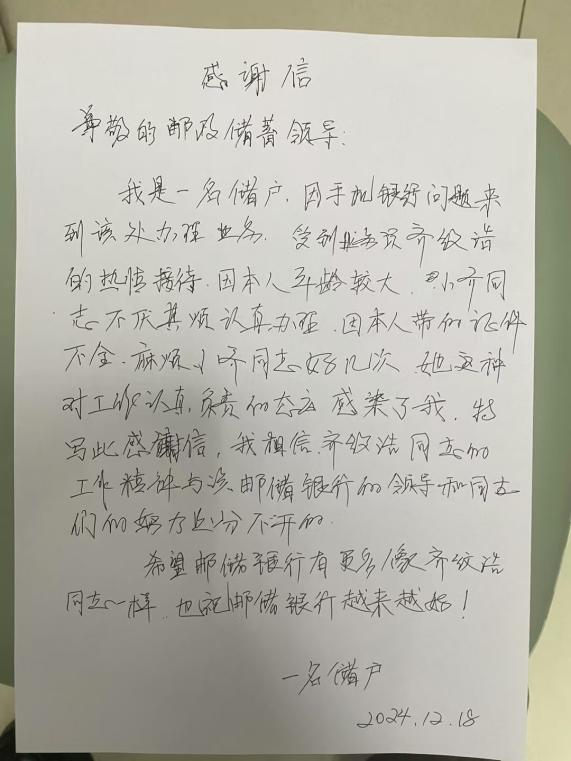 感谢信
尊敬的邮政储蓄领导：
我是一名储户，因手机银行问题来
到该处办理业务，受到业务员齐纹浩
的热情接待，因本人年龄较大，小齐同
志不厌其烦认真办理，因本人带的证件
不全，麻烦小齐同志好几次，她这种
对工作认真，负责的态度感染了我，特
写此感谢信，我相信，齐纹浩同志的
工作精神与该邮储银行的领导和同志
们的努力是分不开的。
希望邮储银行有更多像齐纹浩
同志一样，也祝邮储银行越来越好！
一名储户
2024.12.18